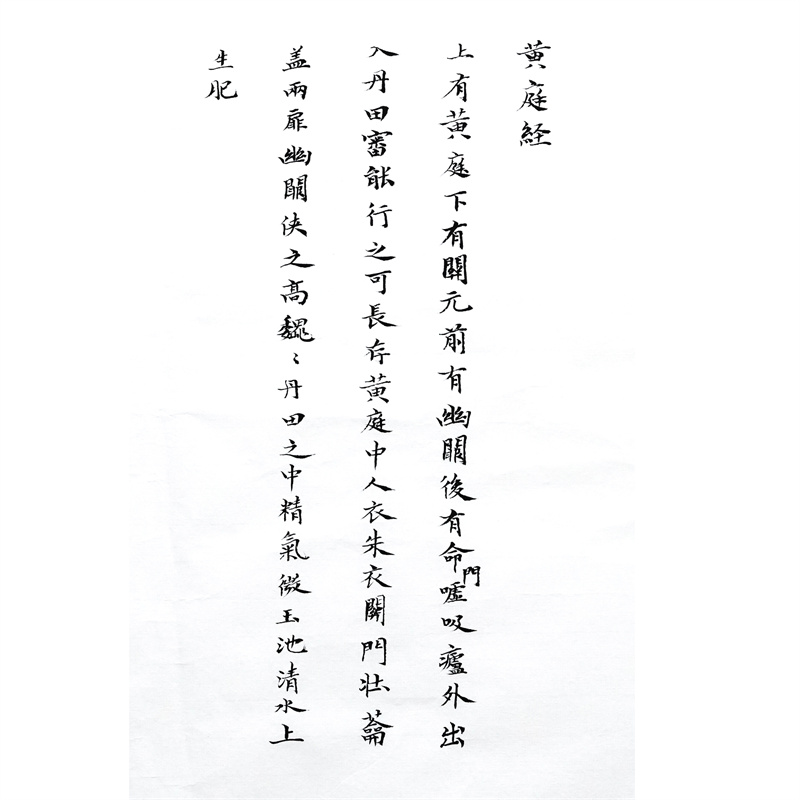 黄庭経
上有黄庭下有關元前有幽闕後有命門噓吸廬外出
入丹田審能行之可長存黄庭中人衣朱衣關門壮蘥
盖兩扉幽闕侠之高魏〻丹田之中精氣微玉池清水上
生肥